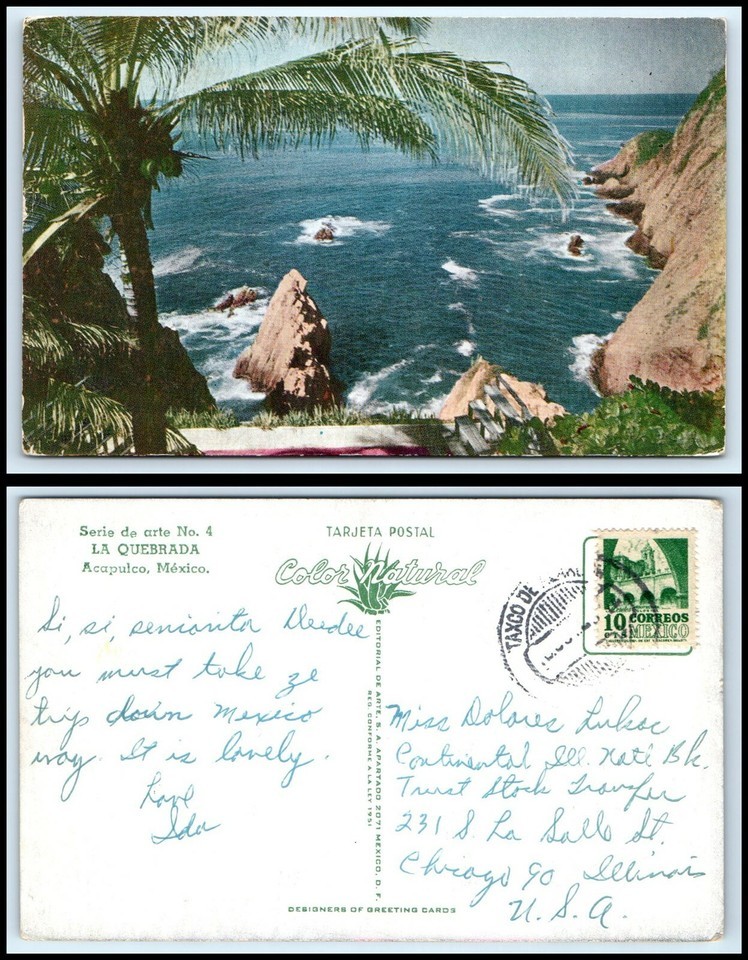 Serie de arte No. 4
LA QUEBRADA
Acapulco, México.
TARJETA POSTAL
Color Natural
TAXCO DE
10 CORREOS
CTS MEXICO
Si, si, seniorita Deedee
you must take ze
trip down Mexico
way. It is lovely.
Love
Ida
EDITORIAL DE ARTE, S. A. APARTADO 2071 MEXICO, D. F.
REG. CONFORME A LA LEY 1951
Miss Dolores Luksac
Continental Ill. Natl Bk.
Trust Stock Transfer
231 S. La Salle St.
Chicago 90 Illinois
U. S. A.
DESIGNERS OF GREETING CARDS